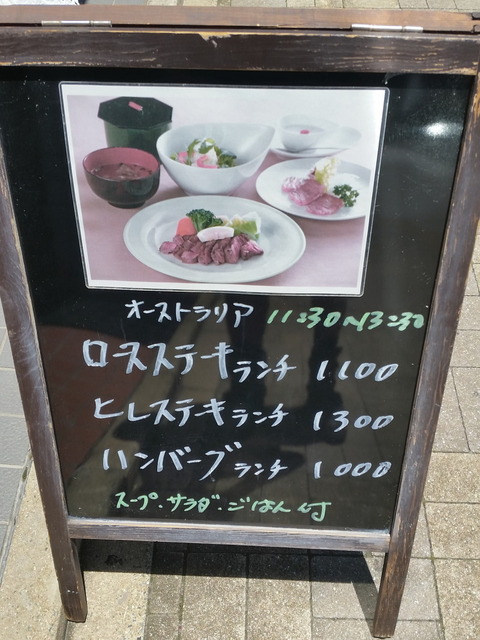 オーストラリア 11:30〜13:30
ロースステーキランチ 1100
ヒレステーキランチ 1300
ハンバーグランチ 1000
スープ・サラダ・ごはん付